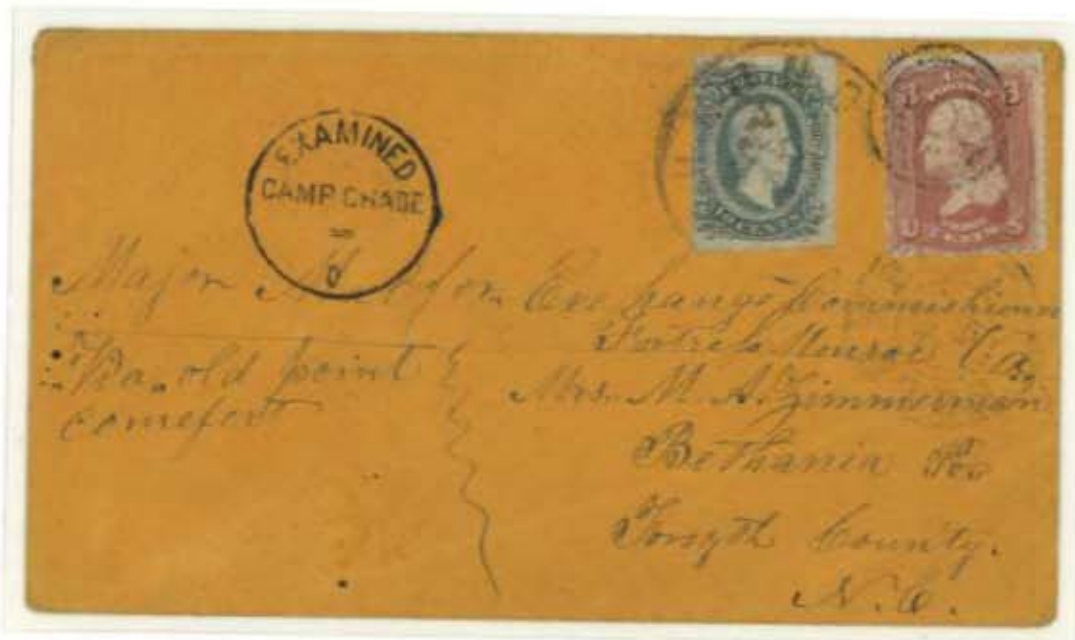 EXAMINED
CAMP CHASE
Major for Exchange Commissioner
Fortress Monroe Va,
Via. old point
comefort
Mrs. M. A. Zimmerman
Bethania Po
Forsyth County.
N. C.